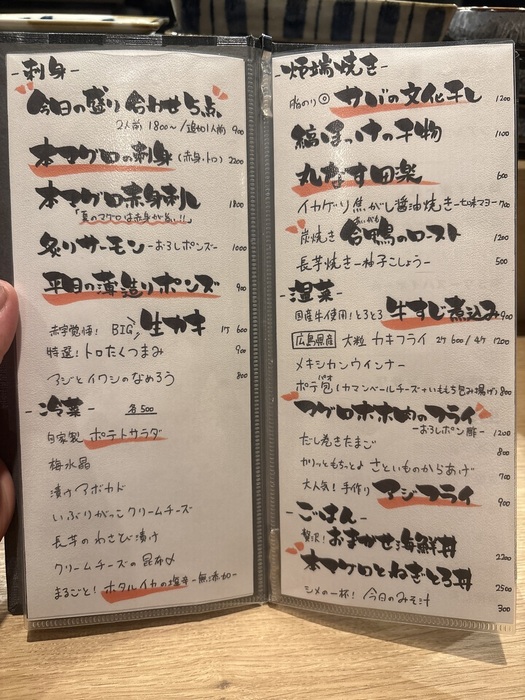 -刺身-
今日の盛り合わせ5点
2人前 1800〜/追加1人前 900
本マグロの刺身(赤身・トロ) 2200
本マグロ赤身刺し 1800
「夏のマグロは赤身が旨い!!」
炙りサーモン-おろしポンズ- 1000
平目の薄造りポンズ 900
赤字覚悟! BIG 生カキ 1ケ 600
特選! トロたくつまみ 900
アジとイワシのなめろう 800
-冷菜- 各500
自家製 ポテトサラダ
梅水晶
漬けアボカド
いぶりがっこクリームチーズ
長芋のわさび漬け
クリームチーズの昆布〆
まるごと! ホタルイカの塩辛-無添加-
-炉端焼き-
脂のり◎ サバの文化干し 1200
縞ほっけの干物 1100
丸なす田楽 600
イカゲソ焦がし醤油焼き-七味マヨ- 700
炭焼き 合鴨のロースト 1200
長芋焼き-柚子こしょう- 500
-温菜-
国産牛使用!とろとろ 牛すじ煮込み 900
広島県産 大粒 カキフライ 2ケ 600/4ケ 1200
メキシカンウインナー
ポテ包(カマンベールチーズ+いももち包み揚げ) 800
マグロホホ肉のフライ
-おろしポン酢- 1200
だし巻きたまご 800
カリッともちっと♪ さといものからあげ 700
大人気! 手作り アジフライ 900
-ごはん-
贅沢! おまかせ海鮮丼 2200
本マグロとねぎとろ丼 2500
シメの一杯! 今日のみそ汁 300